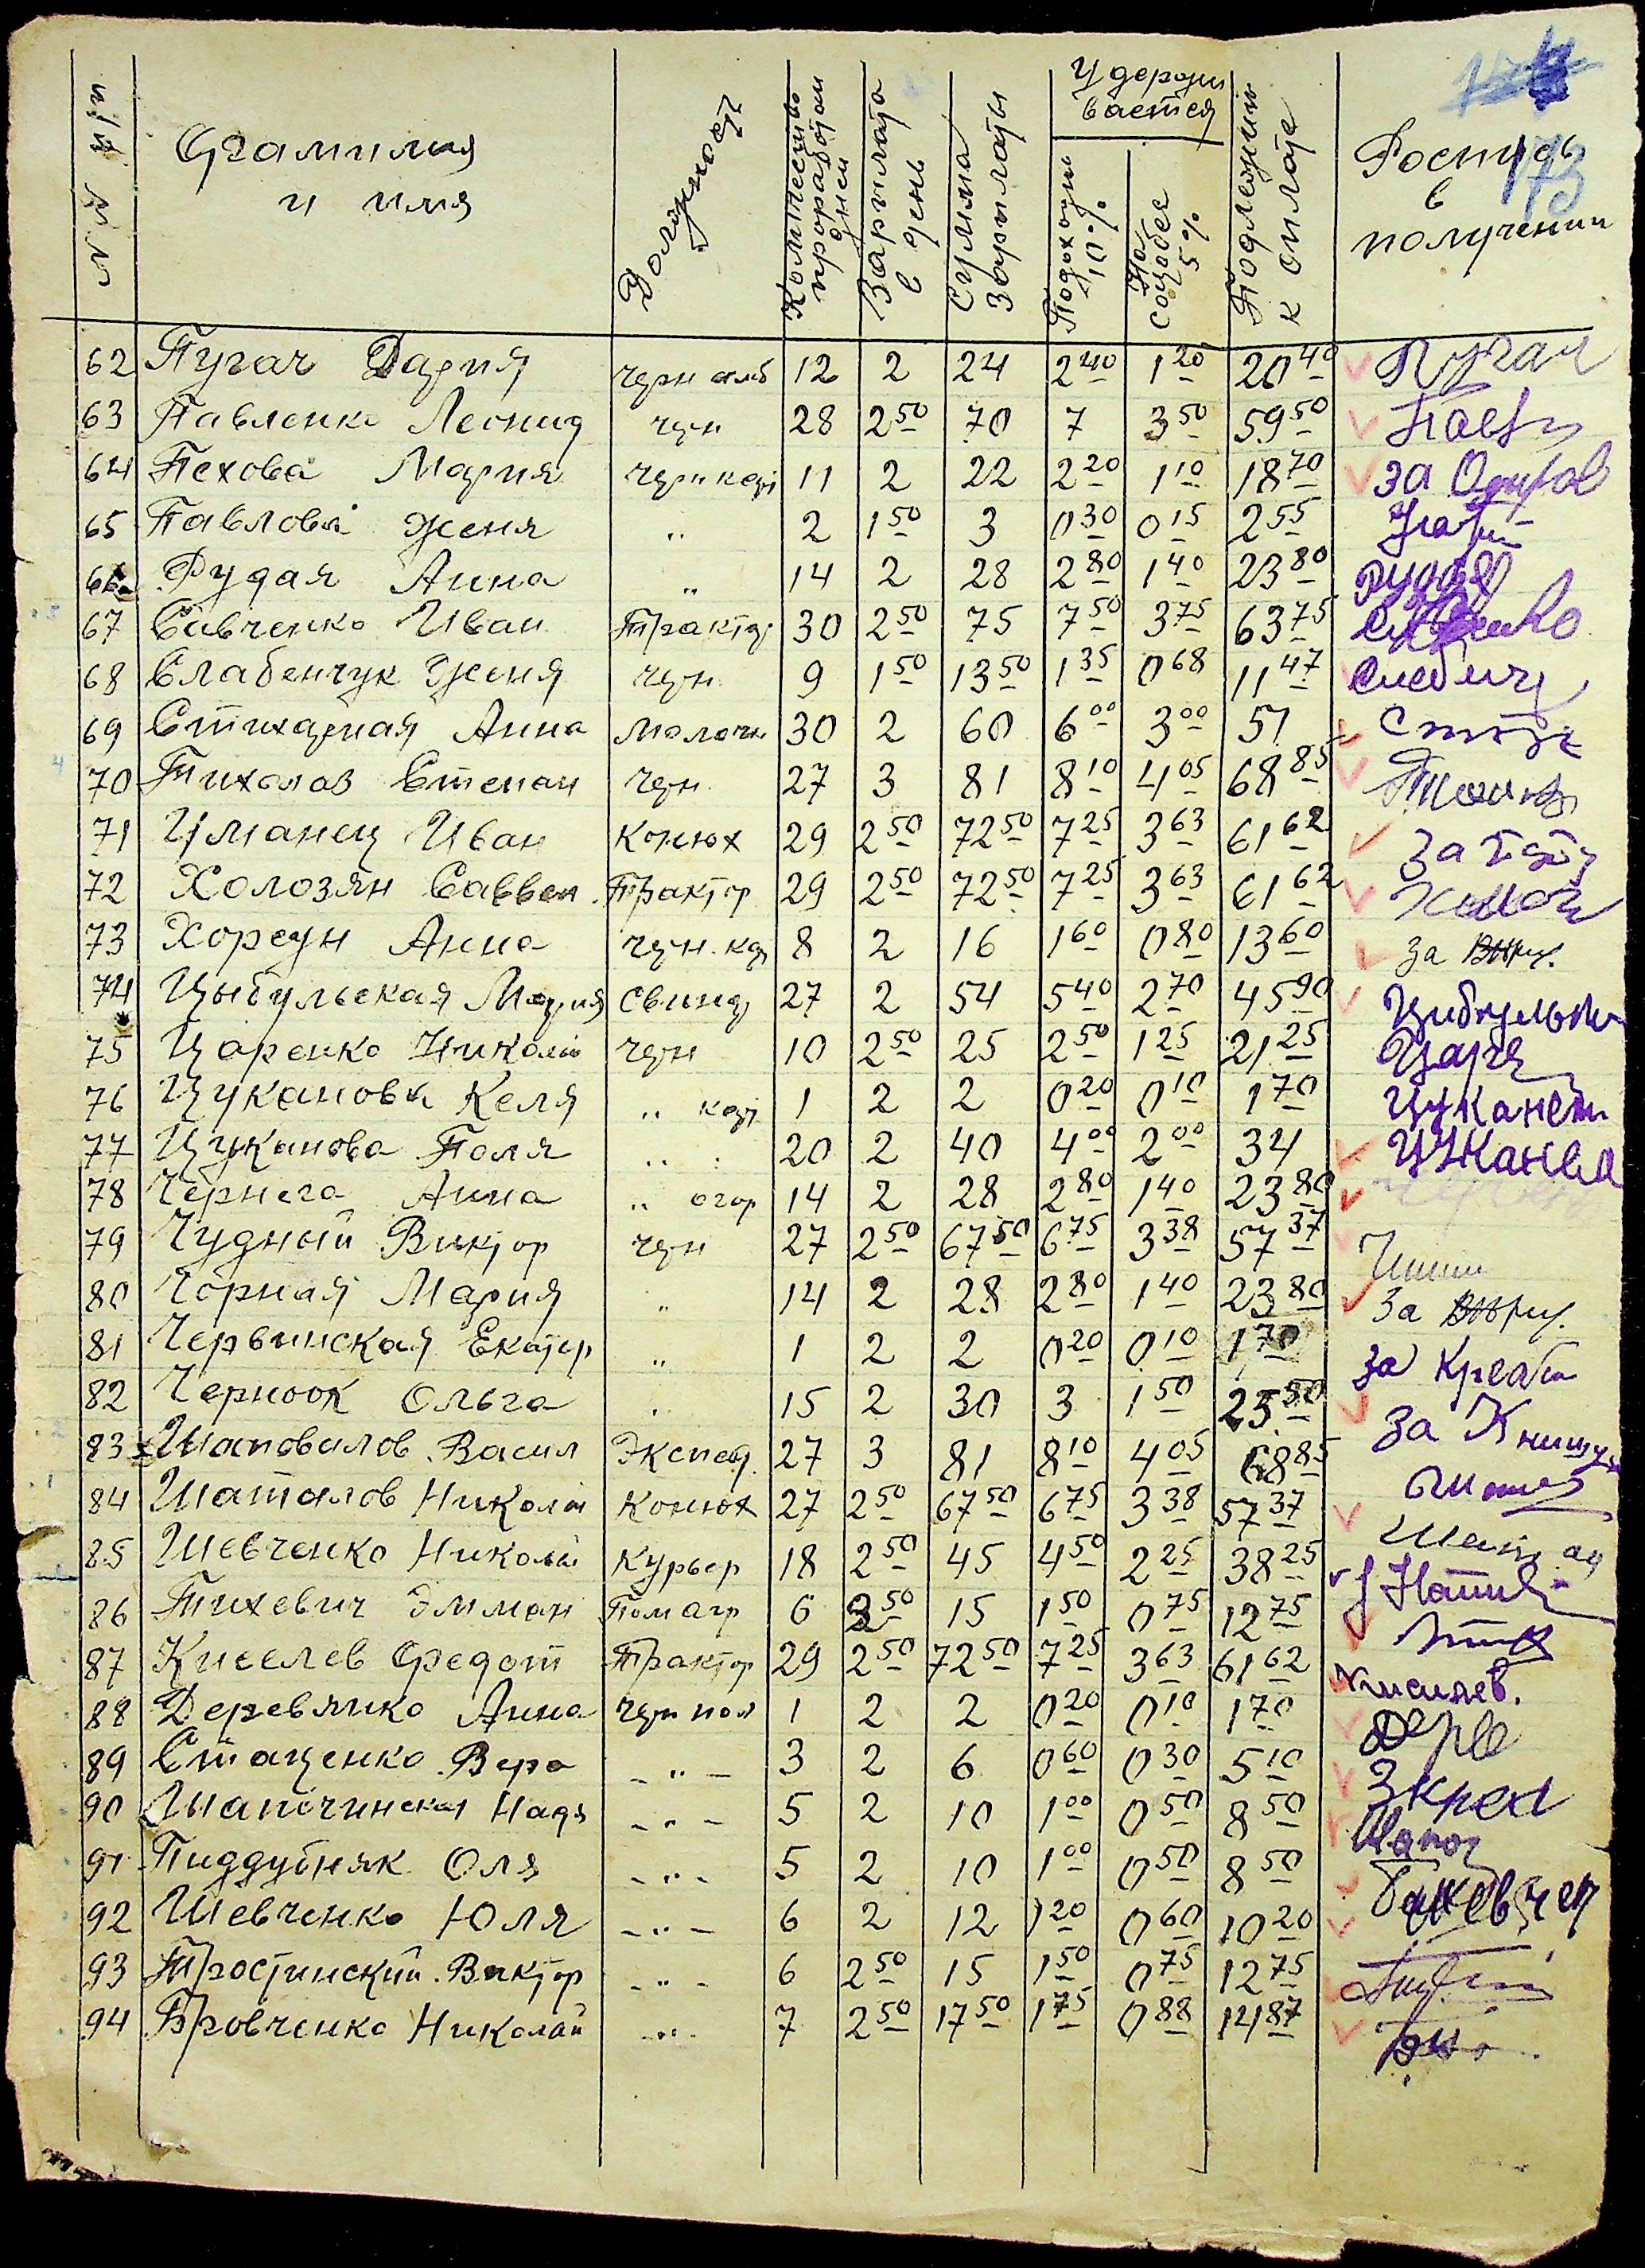 № № п/п Фамилия и имя Должность Количество проработан дней Зарплата в день Сумма Зарплаты Удержи вается Подоходн 10% На соцобес 5% Подлежит к оплате Роспись в получении
173
62 Пугач Дария черн амб 12 2 24 2 40 1 20 20 40 Пугач
63 Павленко Леонид черн 28 2 50 70 7 3 50 59 50
64 Пехова Мария черн кор 11 2 22 2 20 1 10 18 70 за
65 Павлова Женя " 2 1 50 3 0 30 0 15 2 55
66 Рудая Анна " 14 2 28 2 80 1 40 23 80 Рудая
67 Савченко Иван Трактор 30 2 50 75 7 50 3 75 63 75
68 Слабенчук Женя черн 9 1 50 13 50 1 35 0 68 11 47
69 Стихарная Анна Молочн 30 2 60 6 00 3 00 51
70 Тихолаз Степан черн 27 3 81 8 10 4 05 68 85
71 Уманец Иван Конюх 29 2 50 72 50 7 25 3 63 61 62 За
72 Холозян Саввен Трактор 29 2 50 72 50 7 25 3 63 61 62
73 Хорсун Анна черн. кор 8 2 16 1 60 0 80 13 60 за
74 Цыбульская Мария Свинар 27 2 54 5 40 2 70 45 90
75 Царенко Николай черн 10 2 50 25 2 50 1 25 21 25
76 Цуканова Келя " кор 1 2 2 0 20 0 10 1 70
77 Цуканова Поля " 20 2 40 4 00 2 00 34
78 Чернега Анна " огор 14 2 28 2 80 1 40 23 80
79 Чудный Виктор черн 27 2 50 67 50 6 75 3 38 57 37
80 Чорная Мария " 14 2 28 2 80 1 40 23 80 За
81 Червинская Екатер " 1 2 2 0 20 0 10 1 70 за
82 Черноок Ольга " 15 2 30 3 1 50 25 50 за
83 Шаповалов Васил Экспед 27 3 81 8 10 4 05 68 85
84 Шаталов Николай Конюх 27 2 50 67 50 6 75 3 38 57 37
85 Шевченко Николай Курьер 18 2 50 45 4 50 2 25 38 25
86 Тихевич Эмман Помагр 6 2 50 15 1 50 0 75 12 75
87 Киселев Федот Трактор 29 2 50 72 50 7 25 3 63 61 62 Кисилев.
88 Деревянко Анна черн пол 1 2 2 0 20 0 10 1 70
89 Стаценко Вера - " - 3 2 6 0 60 0 30 5 10
90 Шапочинская Надя - " - 5 2 10 1 00 0 50 8 50
91 Пиддубняк Оля - " - 5 2 10 1 00 0 50 8 50
92 Шевченко Юля - " - 6 2 12 1 20 0 60 10 20
93 Тростинский Виктор - " - 6 2 50 15 1 50 0 75 12 75
94 Бровченко Николай - " - 7 2 50 17 50 1 75 0 88 14 87